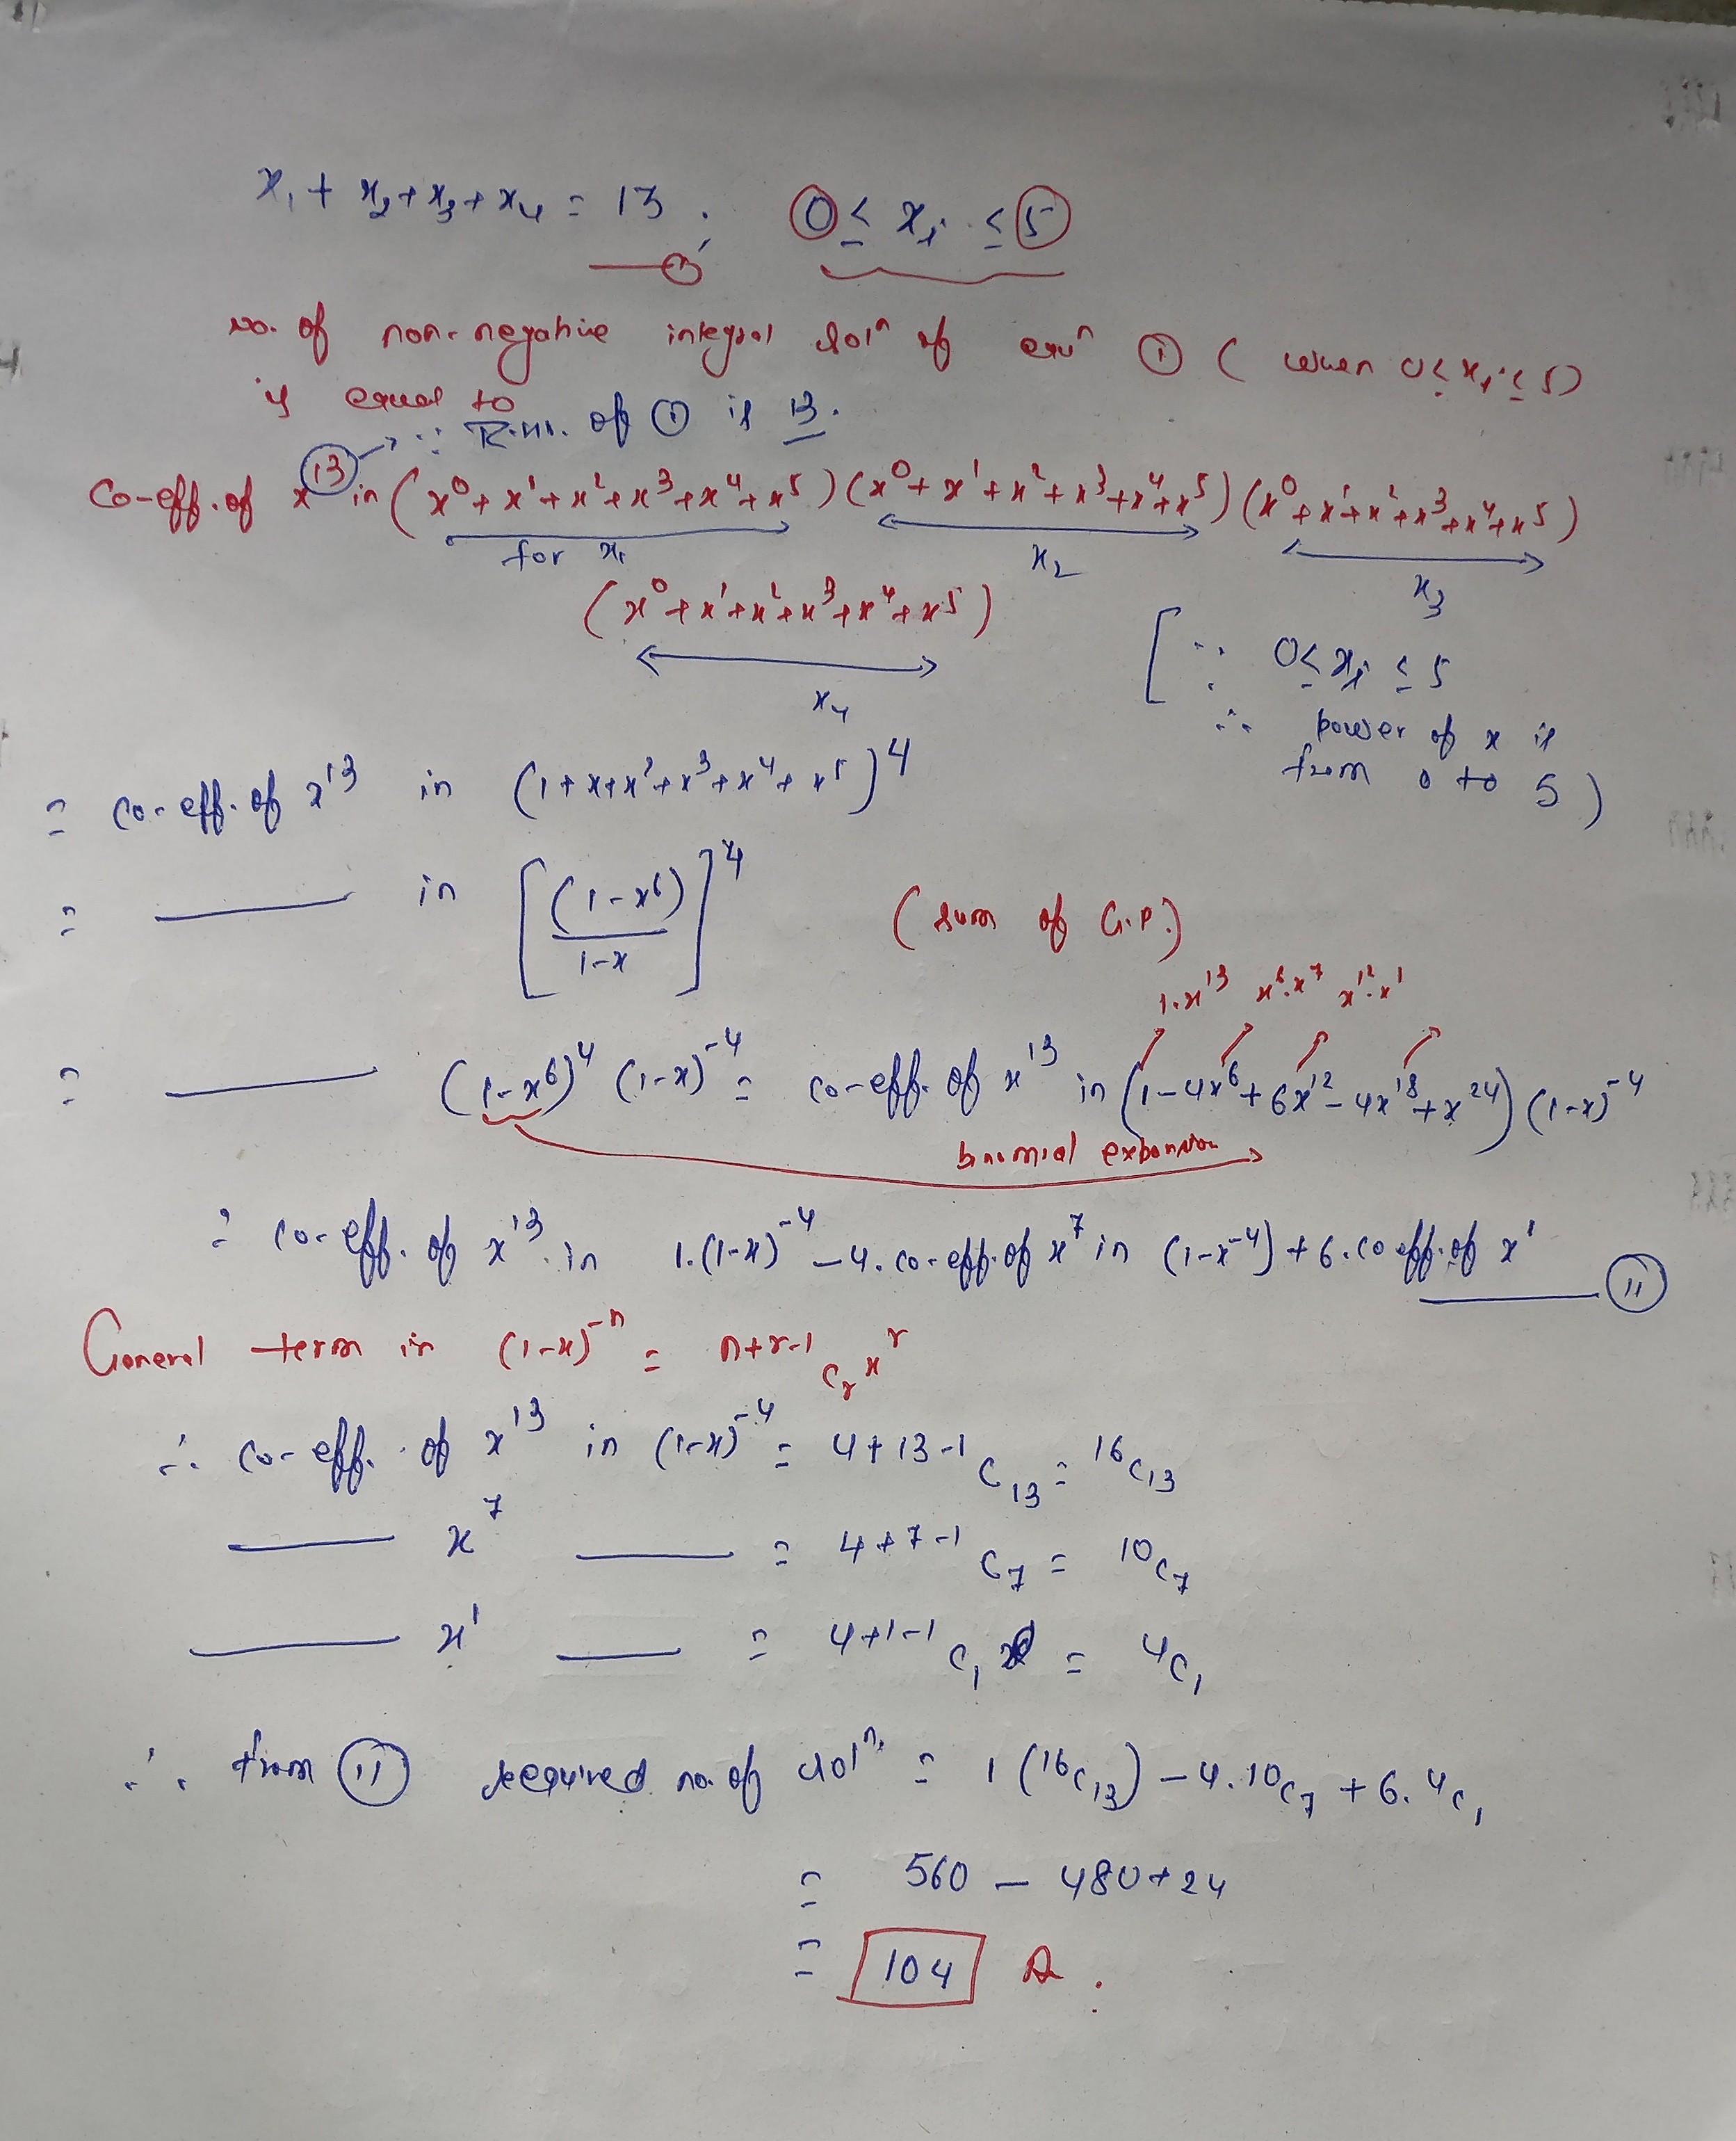 x₁ + x₂ + x₃ + x₄ = 13 , 0 ≤ xᵢ ≤ 5
— ①
no. of non-negative integral solⁿ of equⁿ ① ( when 0 ≤ xᵢ ≤ 5)
is equal to
∵ R.H.S. of ① is 13.
Co-eff. of x¹³ in (x⁰ + x¹ + x² + x³ + x⁴ + x⁵) (x⁰ + x¹ + x² + x³ + x⁴ + x⁵) (x⁰ + x¹ + x² + x³ + x⁴ + x⁵)
for x₁ x₂ x₃
(x⁰ + x¹ + x² + x³ + x⁴ + x⁵)
x₄
[ ∵ 0 ≤ xᵢ ≤ 5
∴ power of x is
from 0 to 5 )
= co-eff. of x¹³ in (1 + x + x² + x³ + x⁴ + x⁵)⁴
= —— in [(1-x⁶)/(1-x)]⁴ (sum of G.P.)
1.x¹³ x⁶.x⁷ x¹².x¹
= —— (1-x⁶)⁴ (1-x)⁻⁴ = co-eff. of x¹³ in (1 - 4x⁶ + 6x¹² - 4x¹⁸ + x²⁴) (1-x)⁻⁴
binomial expansion
= co-eff. of x¹³ in 1.(1-x)⁻⁴ - 4. co-eff. of x⁷ in (1-x⁻⁴) + 6. co eff. of x¹
—— ⑪
General term in (1-x)⁻ⁿ = ⁿ⁺ʳ⁻¹Cᵣ xʳ
∴ co-eff. of x¹³ in (1-x)⁻⁴ = ⁴⁺¹³⁻¹C₁₃ = ¹⁶C₁₃
—— x⁷ —— = ⁴⁺⁷⁻¹C₇ = ¹⁰C₇
—— x¹ —— = ⁴⁺¹⁻¹C₁ = ⁴C₁
∴ from ⑪ required no. of solⁿ. = 1 (¹⁶C₁₃) - 4. ¹⁰C₇ + 6. ⁴C₁
= 560 - 480 + 24
= 104